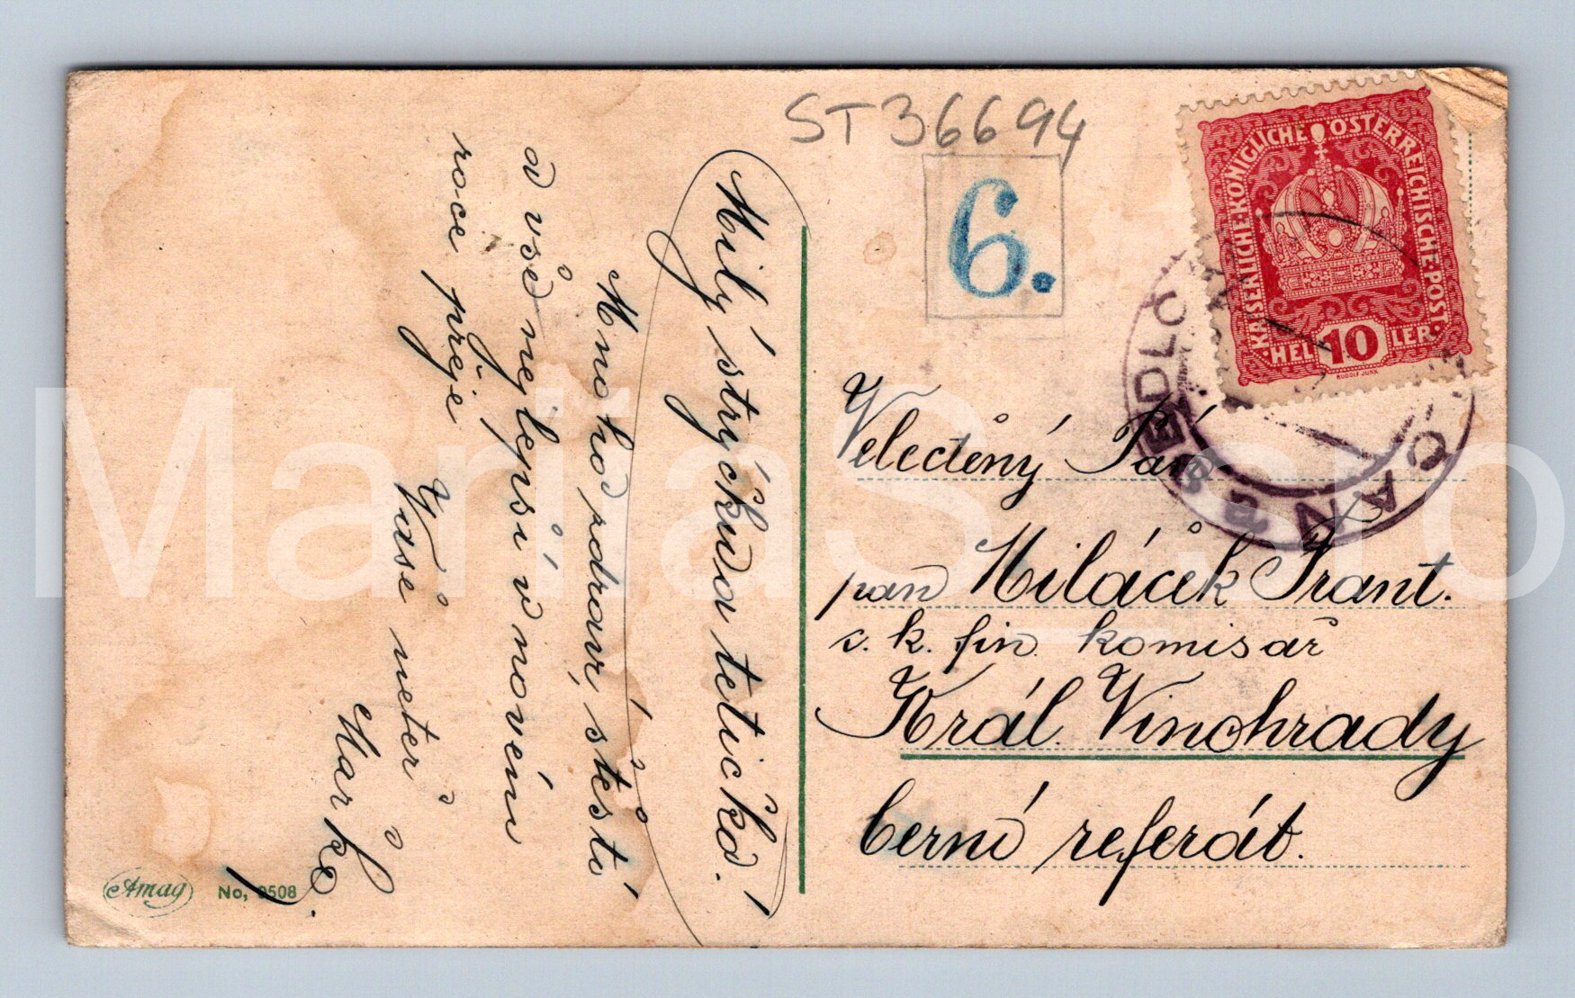 ST 36694
6.
KAISERLICHE·KÖNIGLICHE ÖSTERREICHISCHE·POST·
·HELLER·
10
RUDOLF JUNK
Milý strýčku a tetičko!
Mnoho zdraví, štěstí
a vše nejlepší v novém
roce přeje
Vaše neteř
Mařka.
Velectěný Pán
pan Miláček Frant.
c. k. fin. komisař
Král. Vinohrady
berní referát.
Amag
No, 0508